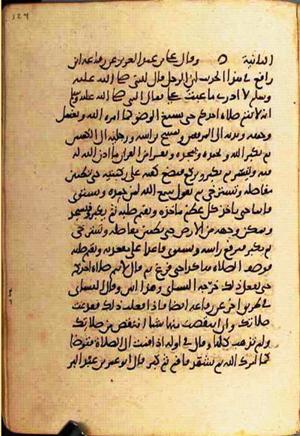 الثانية ٥ وقال علي بن عبد العزيز عن رفاعة بن
رافع في هذا الحديث ان الرجل قال للنبي صلى الله عليه
وسلم لا ادري ما عبت علي فقال النبي صلى الله عليه وسلم
انه لا تتم صلاة احدكم حتى يسبغ الوضوء كما امره الله ويغسل
وجهه ويديه الى المرفقين ويمسح براسه ورجليه الى الكعبين
ثم يكبر الله ويحمده ويمجده ويقرا من القران ما اذن الله له
فيه وتيسر ثم يكبر ويركع فيضع كفيه على ركبتيه حتى تطمئن
مفاصله وتسترخي ثم يقول سمع الله لمن حمده ويستوي
قائما حتى ياخذ كل عظم ماخذه ويقيم صلبه ثم يكبر فيسجد
ويمكن وجهه من الارض حتى تطمئن مفاصله وتسترخي
ثم يكبر فيرفع راسه ويستوي قاعدا على مقعدته ويقيم صلبه
فوصف الصلاة هكذا حتى فرغ ثم قال لا تتم صلاة احدكم
حتى يفعل ذلك خرجه النسائي وهذا وقال النسائي
في طريق اخر عن رفاعة ايضا فاذا فعلت ذلك فقد تمت
صلاتك وان انتقصت منها شيا انتقص من صلاتك
ولم تذهب كلها وقال في اوله اذا قمت الى الصلاة فتوضا
كما امرك الله ثم تشهد فاقم ثم كبر قال ابو عمر بن عبد البر